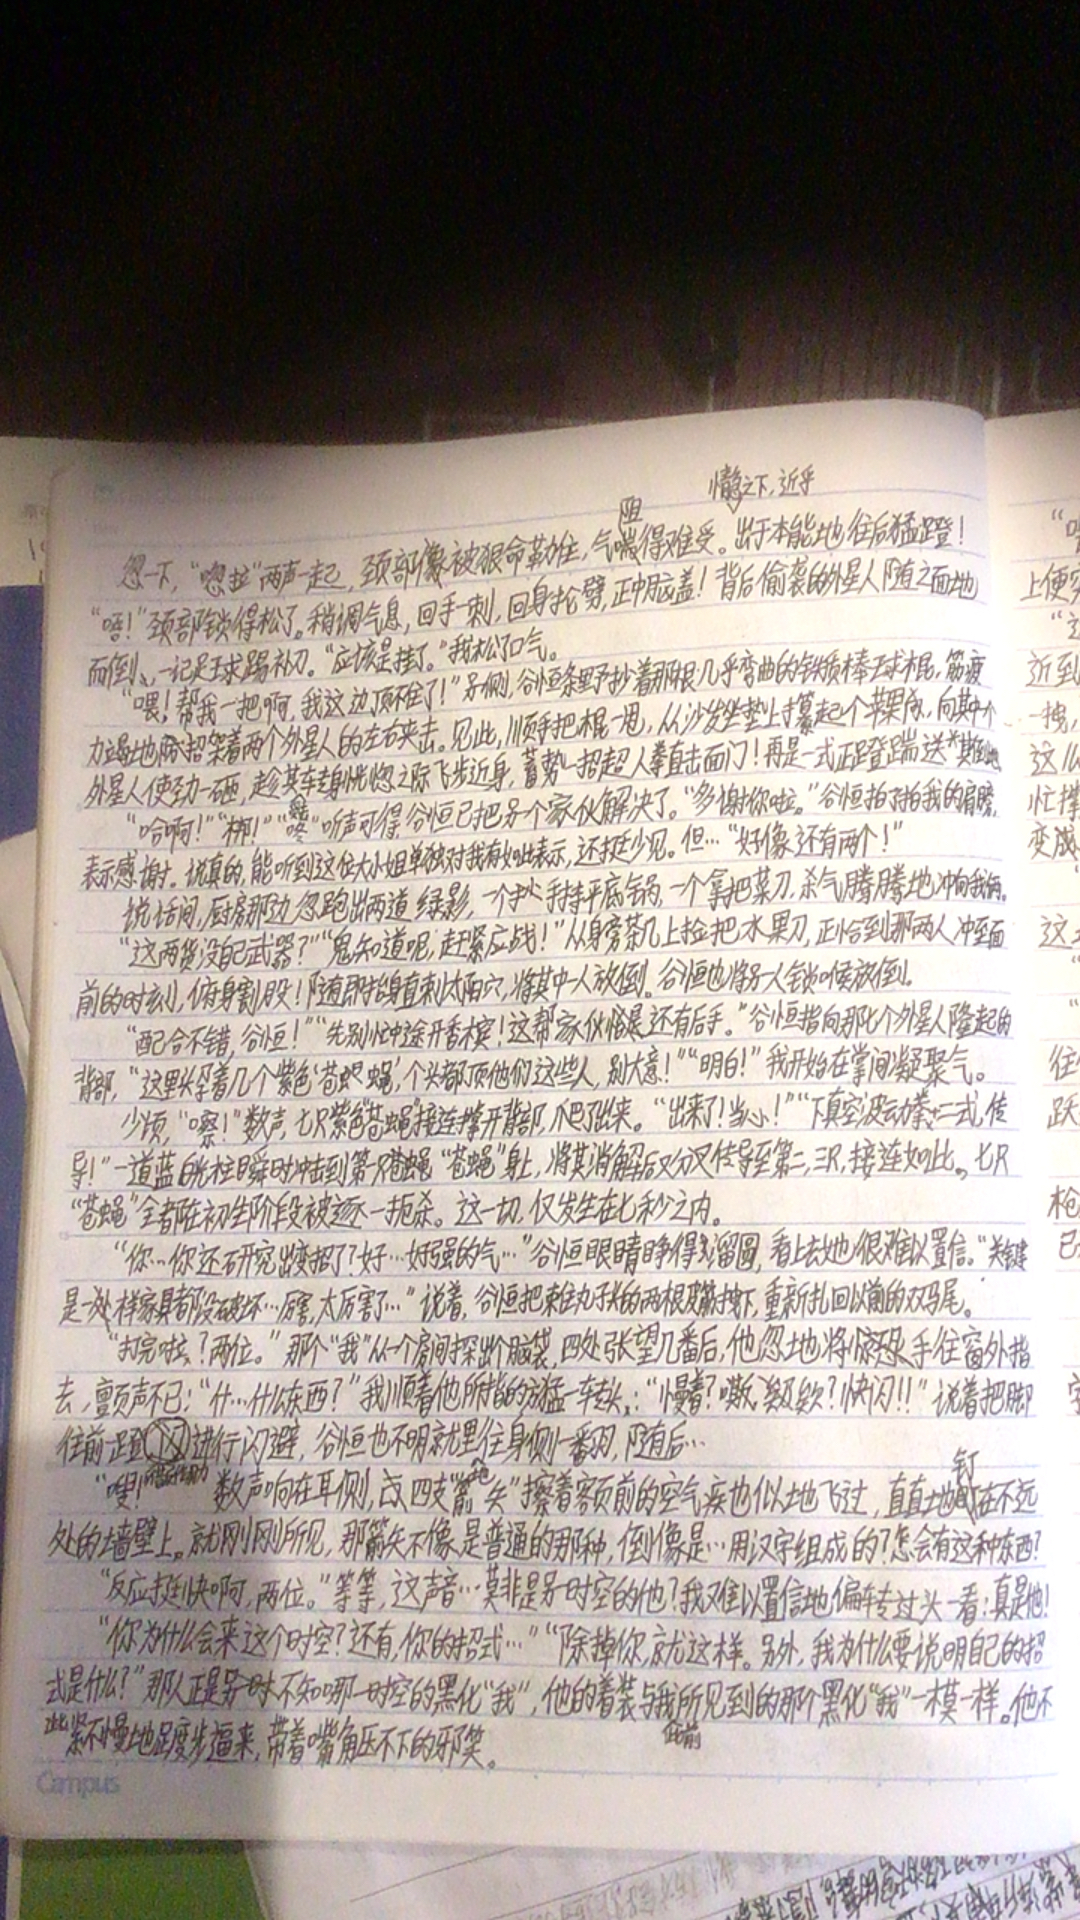 情急之下,近乎
阻
忽一下,“唿拉”两声一起,颈部像被狠命勒住,气喘得难受。出于本能地往后猛蹬!
“唔!”颈部锁得松了。稍调气息,回手一刺,回身抡劈,正中脑盖!背后偷袭的外星人随之面地
而倒、一记足球踢补刀。“应该是挂了。”我松了口气。
“喂!帮我一把啊,我这边顶不住了!”另侧,谷恒条野抄着那根几乎弯曲的铁质棒球棍,筋疲
力竭地招架着两个外星人的左右夹击。见此,顺手把棍一甩,从沙发坐垫上攥起个苹果,向其中个
外星人使劲一砸,趁其车转身恍惚之际飞步近身,蓄势一招超人拳直击面门!再是一式正蹬踹送其
“哈啊!”“梆!”“咚”听声可得谷恒已把另个家伙解决了。“多谢你啦。”谷恒拍了拍我的肩膀,
表示感谢。说真的,能听到这位大小姐单独对我有如此表示,还挺少见。但…“好像还有两个!”
说话间,厨房那边忽跑出两道绿影,一个手持平底锅,一个拿把菜刀,杀气腾腾地冲向我俩。
“这两货没自己武器?”“鬼知道呢,赶紧应战!”从身旁茶几上捡把水果刀,正恰到那两人冲至面
前的时刻,俯身割股!随即抬身直刺太阳穴,将其中一人放倒。谷恒也将另一人锁喉放倒。
“配合不错,谷恒!”“先别忙中途开香槟!这帮家伙恪是还有后手。”谷恒指向那七个外星人隆起的
背部,“这里头孕着几个紫色‘苍蝇’,个头都顶他们这些人,别大意!”“明白!”我开始在掌间凝聚气。
少顷,“嚓!”数声,七只紫色“苍蝇”接连撑开背部,爬了出来。“出来了!当心!”“下真空波动拳+二式,传
导!”一道蓝白光柱瞬时冲击到第一只苍蝇“苍蝇”身上,将其消解后又分叉传导至第二,三只,接连如此。七只
“苍蝇”全都在初生阶段被逐一扼杀。这一切,仅发生在七秒之内。
“你…你还研究出变招了?好…好强的气…”谷恒眼睛睁得溜圆,看上去她也很难以置信。“关键
是一处样家具都没破坏…厉害,太厉害了…”说着,谷恒把束住丸子头的两根皮筋拽下,重新扎回以前的双马尾。
“打完啦,?两位。”那个“我”从一个房间探出个脑袋,四处张望几番后,他忽地将惊恐手往窗外指
去,颤声不已:“什…什么东西?”我顺着他所指的方猛一车转头,:“慢着?嘶,粪级欸?快闪!!”说着把脚
往前一蹬闪进行闪避,谷恒也不明就里往身侧一翻,随后…
“嗖!”数声响在耳侧,或四支“箭矢”擦着额前的空气疾也似地飞过,直直地钉在不远
处的墙壁上。就刚刚所见,那箭矢不像是普通的那种,倒像是…用汉字组成的?怎会有这种东西?
“反应挺快啊,两位。”等等,这声音…莫非是另一时空的他?我难以置信地偏转过头一看:真是他!
“你为什么会来这个时空?还有,你的招式…”“除掉你,就这样。另外,我为什么要说明自己的招
式是什么?”那人正是另一时不知哪一时空的黑化“我”,他的着装与我所见到的那个黑化“我”一模一样。他不
此前
紧不慢地踱步逼来,带着嘴角压不下的邪笑。
Campus